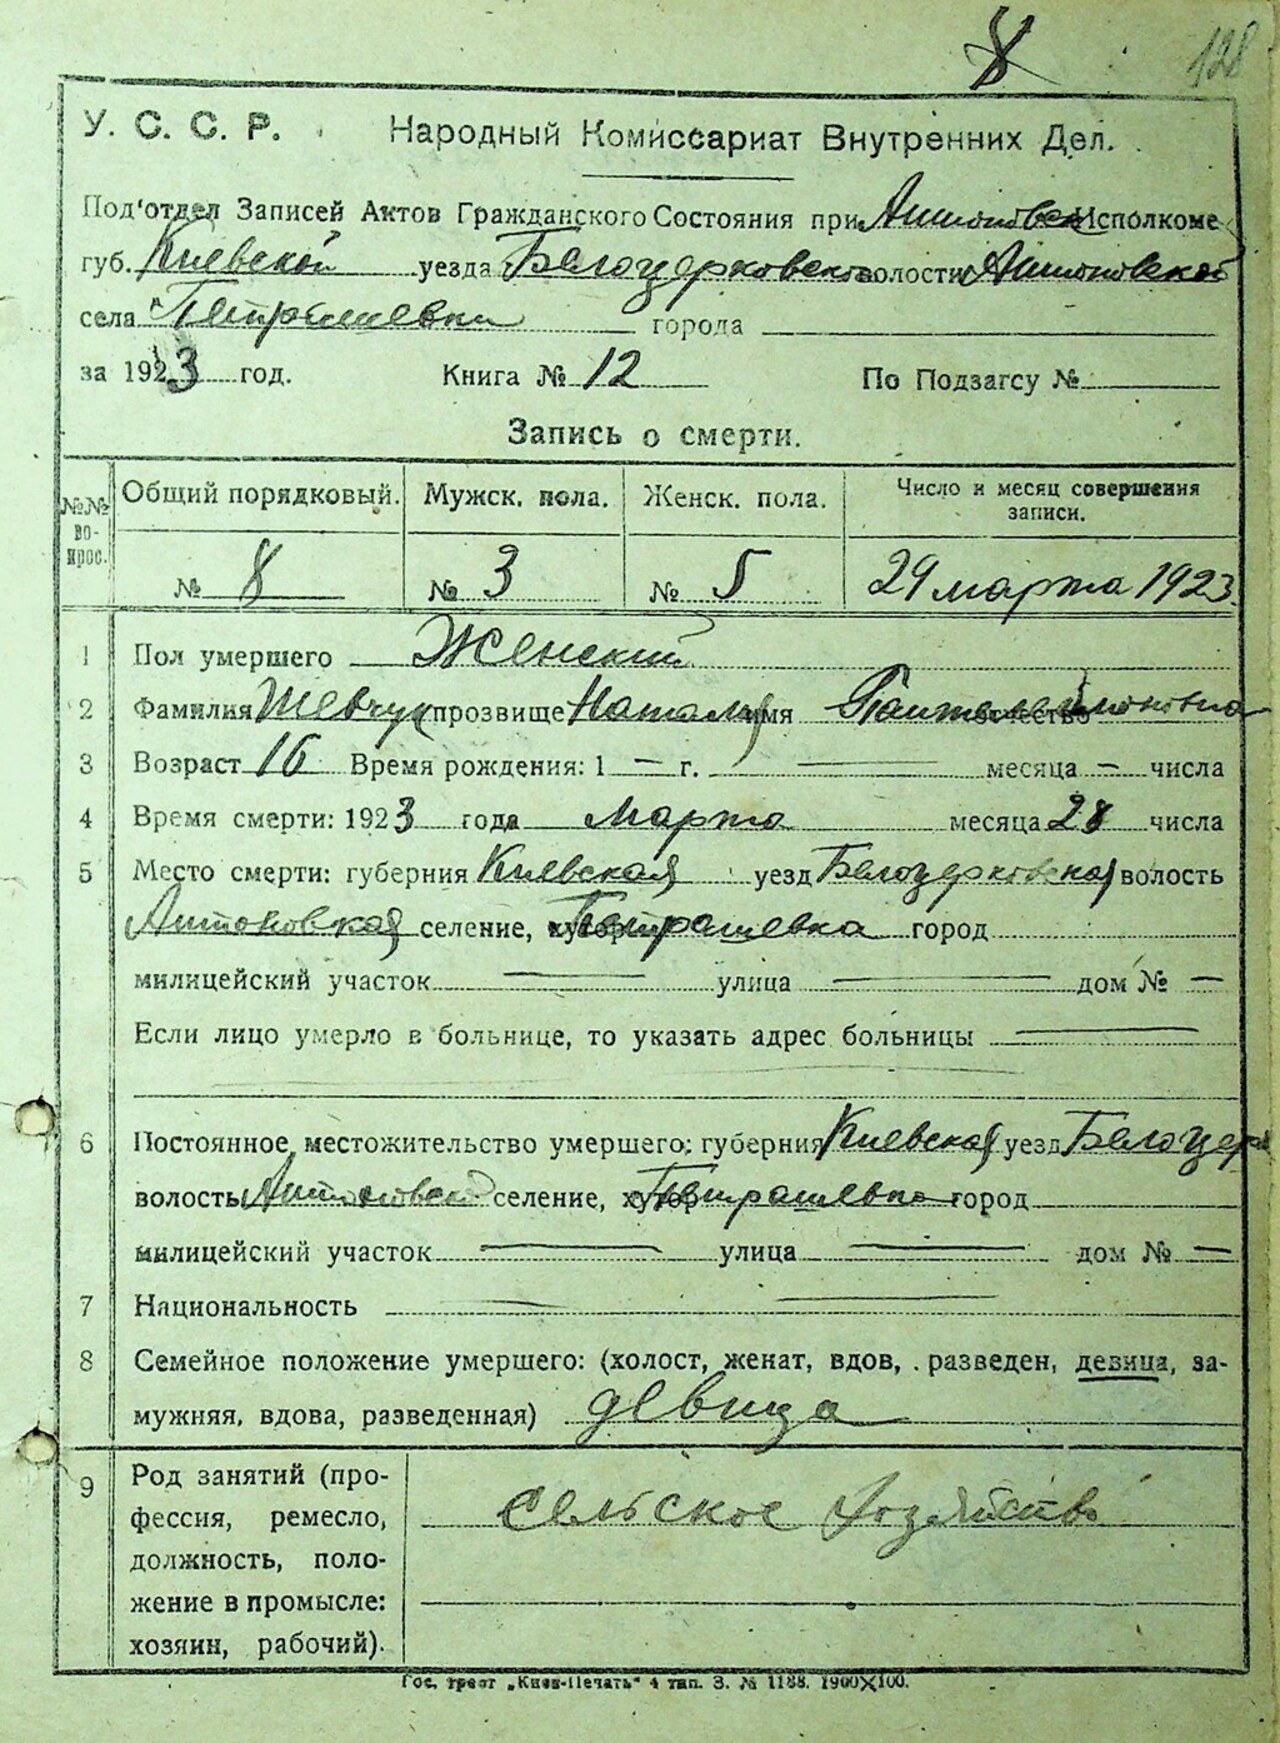 8 128
У. С. С. Р. Народный Комиссариат Внутренних Дел.
Под'отдел Записей Актов Гражданского Состояния при Антоновск Исполкоме
губ. Киевской уезда Белоцерковского волости Антоновской
села Петрашевки города
за 1923 год. Книга № 12 По Подзагсу №
Запись о смерти.
№№ во- прос. Общий порядковый. Мужск. пола. Женск. пола. Число и месяц совершения записи.
№ 8 № 3 № 5 29 марта 1923
1 Пол умершего Женский
2 Фамилия Шевчук (прозвище Наталия имя Пантелеймоновна отчество
3 Возраст 16 Время рождения: 1 — г. — месяца — числа
4 Время смерти: 1923 года Марта месяца 28 числа
5 Место смерти: губерния Киевская уезд Белоцерковская волость
Антоновская селение, хутор Петрашевка город
милицейский участок — улица — дом № —
Если лицо умерло в больнице, то указать адрес больницы —
6 Постоянное местожительство умершего: губерния Киевская уезд Белоцерк
волость Антоновской селение, хутор Петрашевка город
милицейский участок — улица — дом № —
7 Национальность — —
8 Семейное положение умершего: (холост, женат, вдов, разведен, девица, за-
мужняя, вдова, разведенная) девица
9 Род занятий (про-
фессия, ремесло, сельское хозяйство
должность, поло-
жение в промысле:
хозяин, рабочий).
Гос. трест „Киев-Печать" 4 тип. З. № 1188. 1900×100.